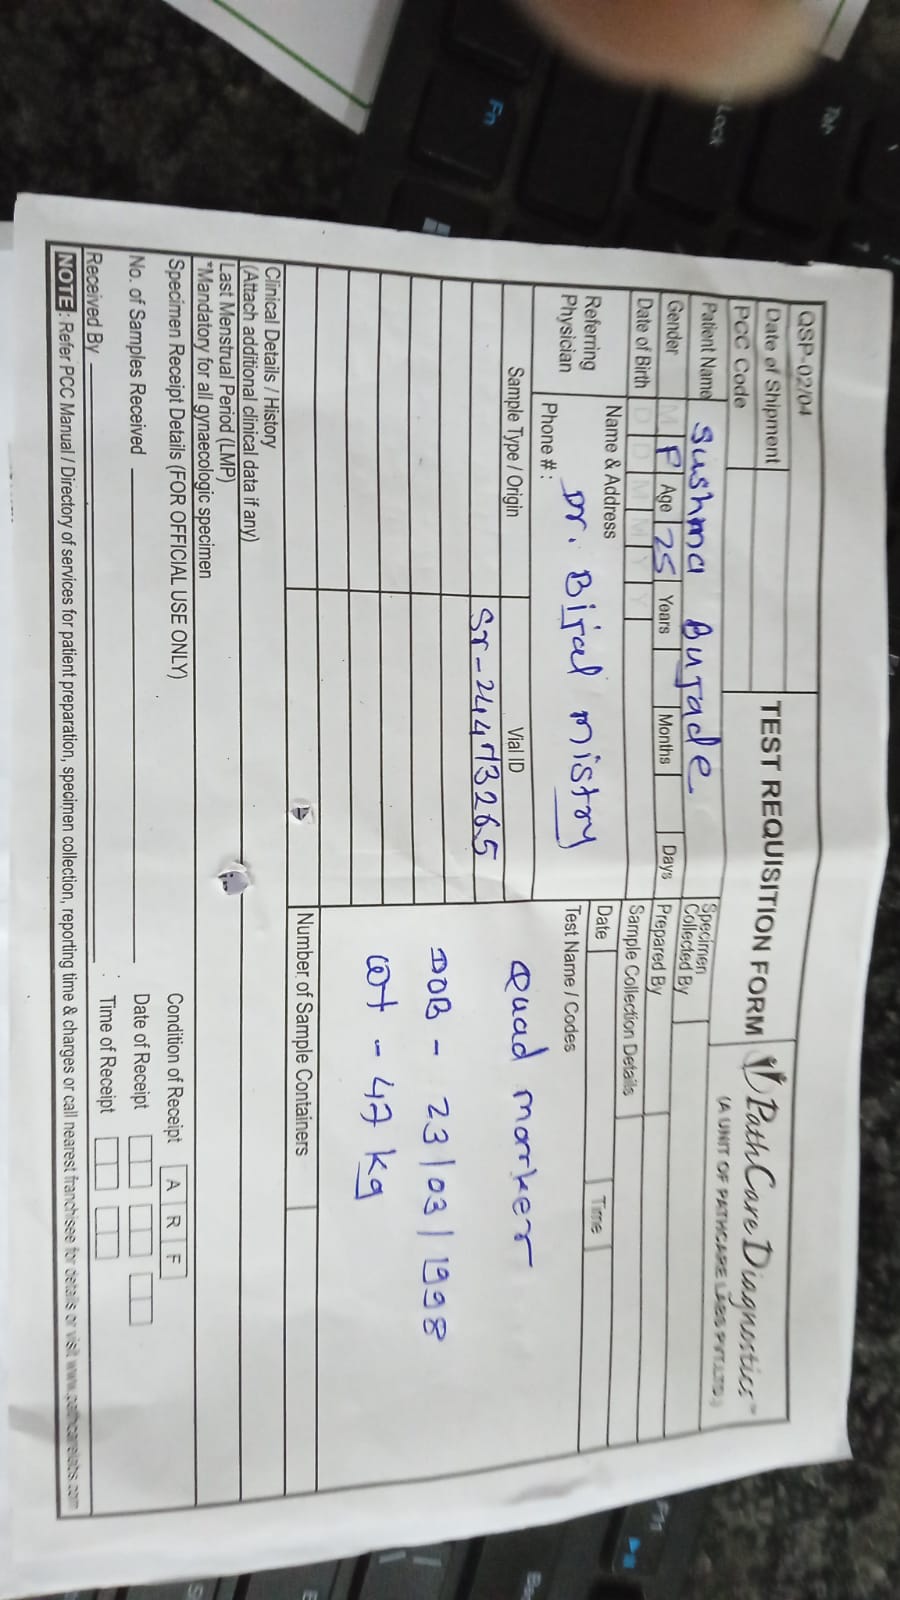 QSP-02/04
Date of Shipment
PCC Code
TEST REQUISITION FORM
PathCare Diagnostics™
(A UNIT OF PATHCARE LABS PVT.LTD.)
Patient Name Sushma Bujade
Specimen Collected By
Gender M F Age 25 Years Months Days
Prepared By
Date of Birth D D M M Y Y
Sample Collection Details
Referring Physician
Name & Address
Dr. Bijal mistry
Phone #:
Date Time
Test Name / Codes
Sample Type / Origin
Vial ID
Sr-24473265
Quad marker
DOB - 23/03/1998
wt - 47 kg
Number of Sample Containers
Clinical Details / History
(Attach additional clinical data if any)
Last Menstrual Period (LMP)
*Mandatory for all gynaecologic specimen
Specimen Receipt Details (FOR OFFICIAL USE ONLY)
Condition of Receipt A R F
No. of Samples Received
Date of Receipt
Received By
Time of Receipt
NOTE : Refer PCC Manual / Directory of services for patient preparation, specimen collection, reporting time & charges or call nearest franchisee for details or visit www.pathcarelabs.com
Tab
Lock
Fn